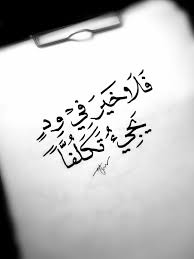 فَلَا خَيرَ فِيْ وِدٍ
يَجِيءُ تَكَلُّفًا